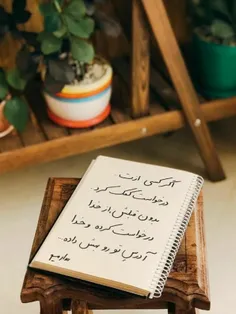 اگر کسی ازت
درخواست کمک کرد
بدون قبلش از خدا
درخواست کرده و خدا
آدرس تو رو بهش داده..